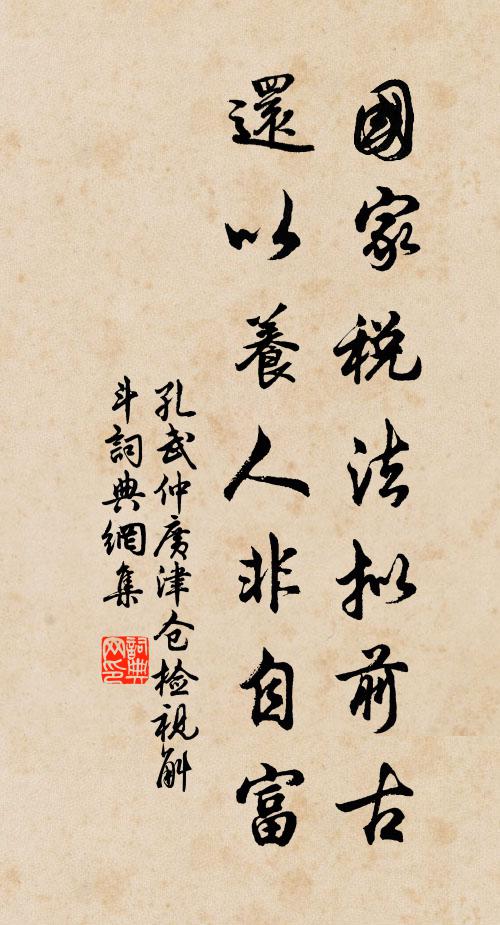 國家税法拟前古
還以養人非自富
孔武仲廣津仓检視斛
斗詞典網集
詞典
网印